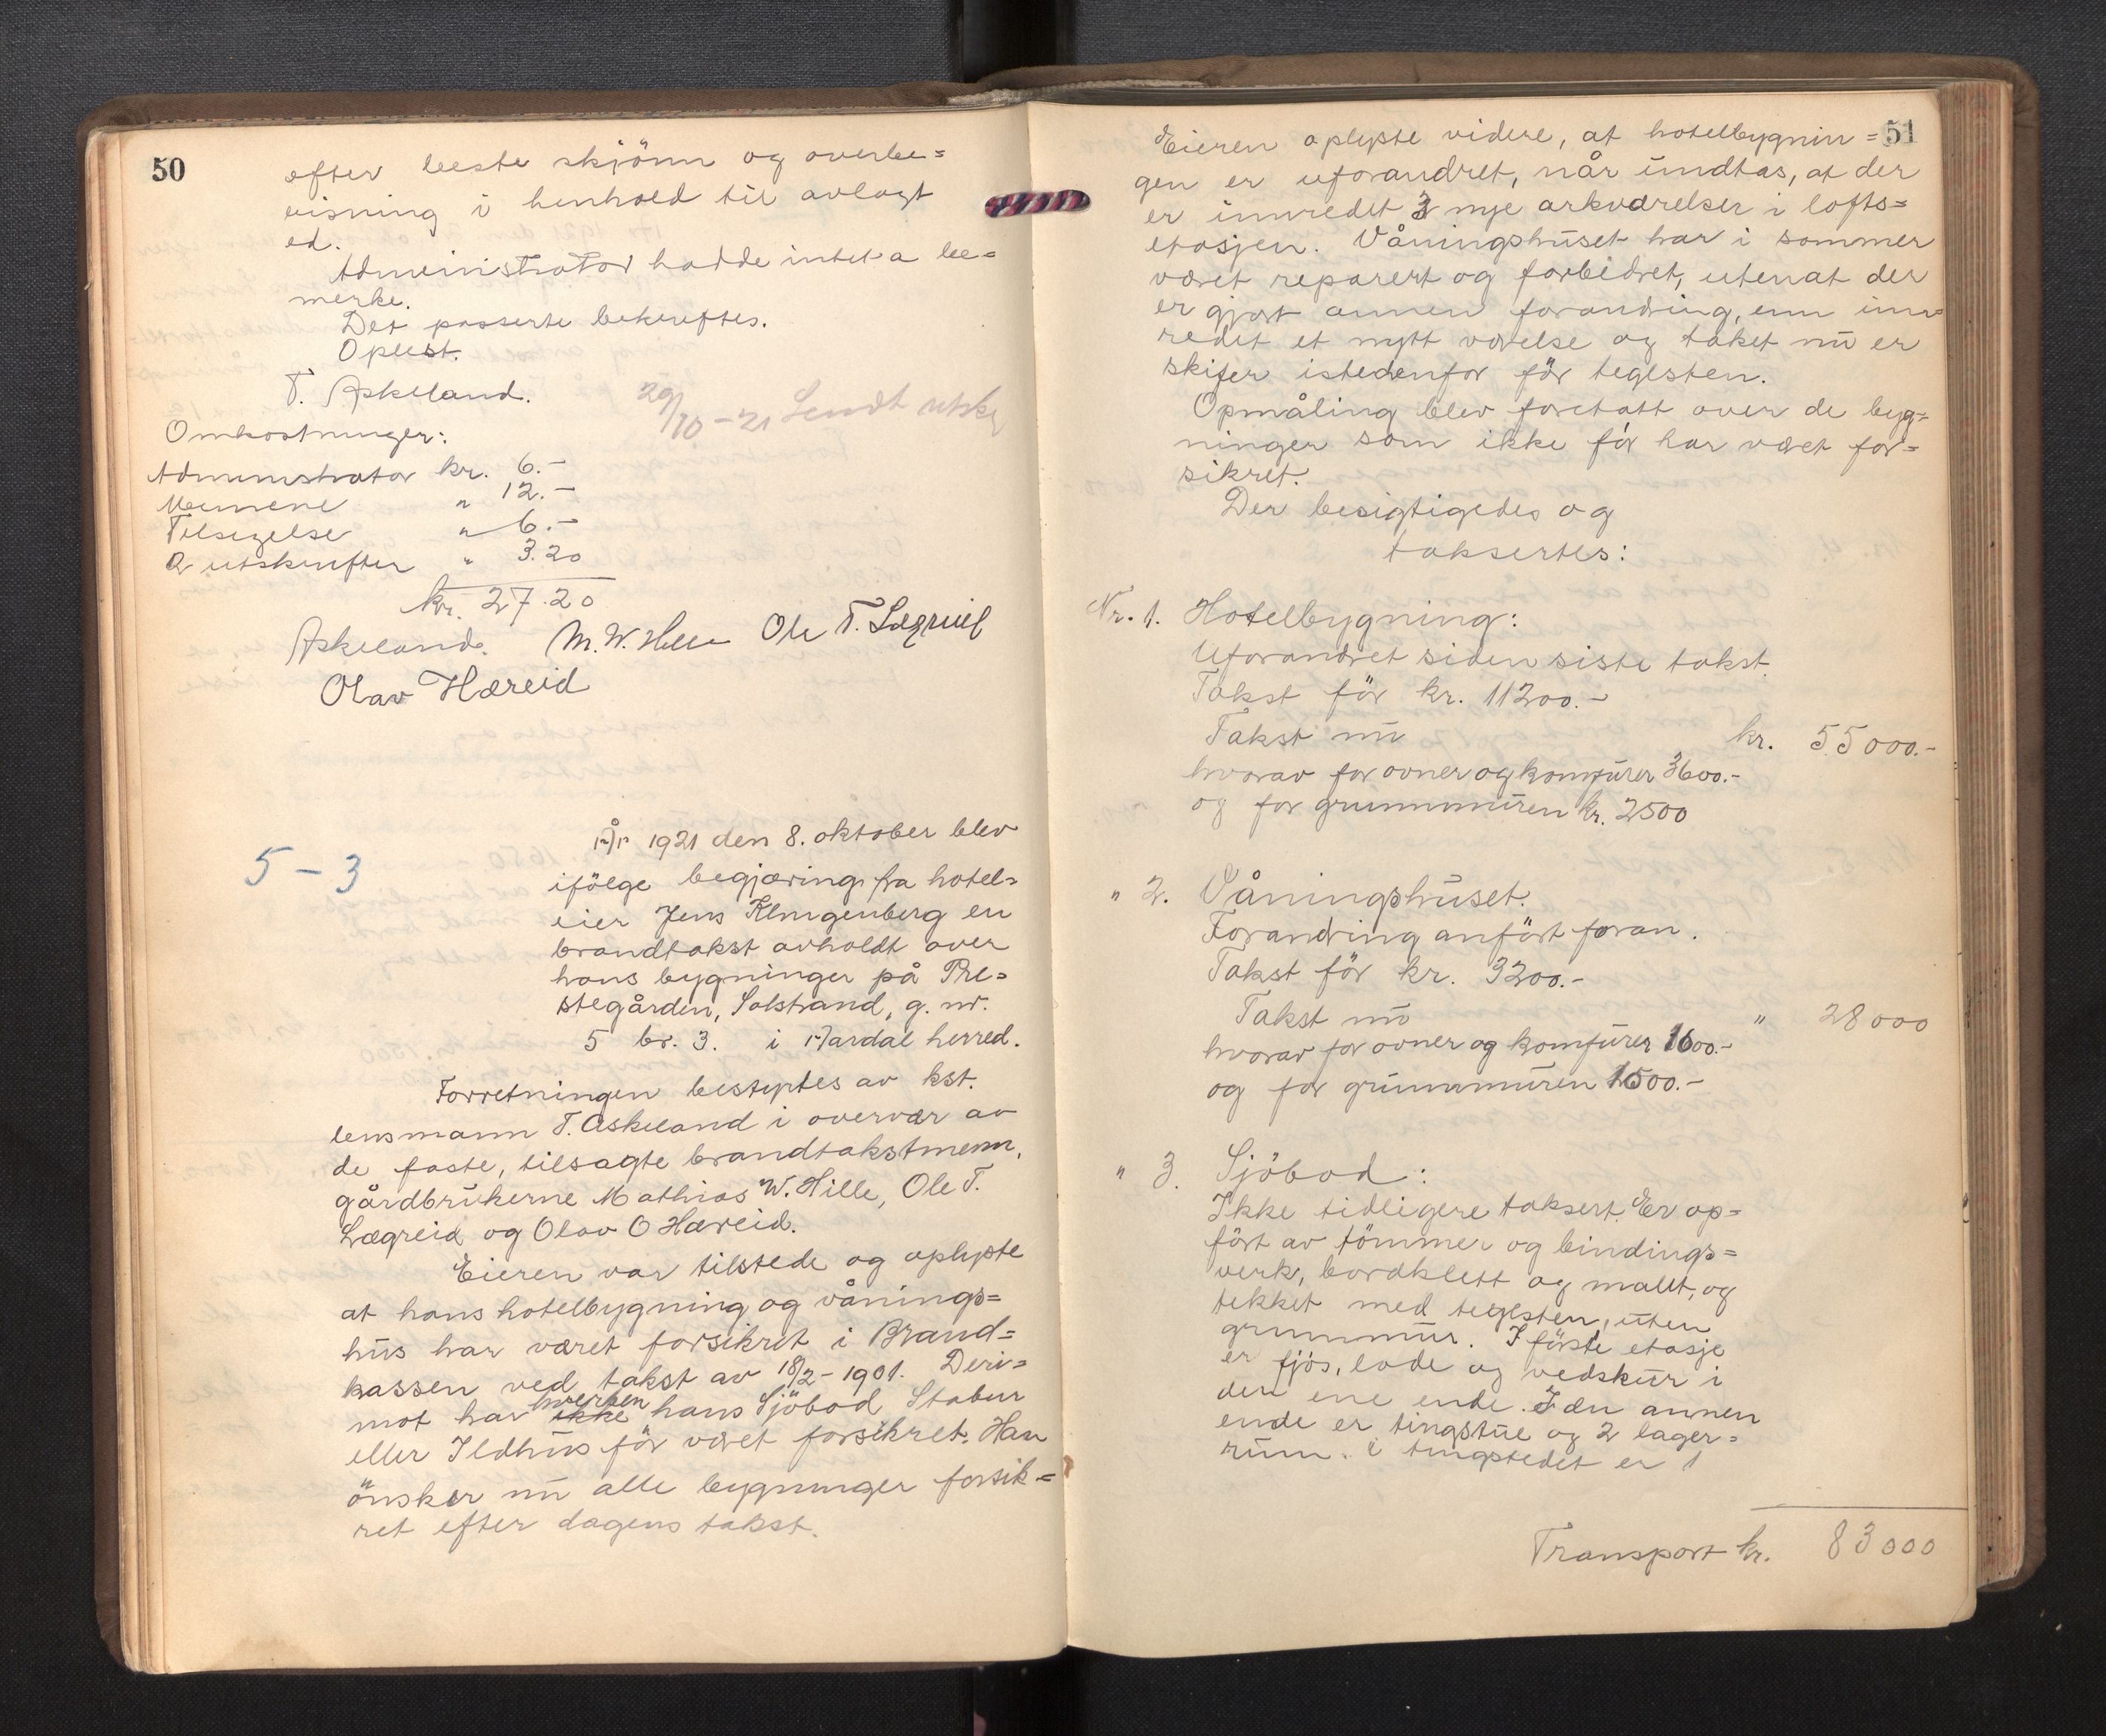 50
efter beste skjönn og overbe=
visning i henhold til avlagt
ed.
Administrator hadde intet a be=
merke.
Det passerte bekreftes.
Oplest.
T. Askeland.
29/10-21 Sendt utskr
Omkostninger:
Administrator kr. 6.-
Mennene " 12.-
Tilsigelse " 6.-
2 utskrifter " 3.20
kr. 27.20
Askeland. M. W. Hille Ole T. Lægreid
Olav Hæreid
5 - 3
År 1921 den 8. oktober blev
ifölge begjæring fra hotel=
eier Jens Klingenberg en
brandtakst avholdt over
hans bygninger på Pre=
stegården, Solstrand, g. nr.
5 br. 3. i Aardal herred.
Forretningen bestyrtes av kst.
lensmann T. Askeland i overvær av
de faste, tilsagte brandtakstmenn,
gårdbrukerne Mathias W. Hille, Ole T.
Lægreid og Olav O Hæreid.
Eieren var tilstede og oplyste
at hans hotelbygning og vånings=
hus har været forsikret i Brand=
kassen ved takst av 18/2-1901. Deri=
mot har hverken ikke hans Sjöbod Stabur
eller Ildhus för været forsikret. Han
önsker nu alle bygninger forsik=
ret efter dagens takst.
51
Eieren oplyste videre, at hotelbygnin=
gen er uforandret, når undtas, at der
er innredet 3 nye arkværelser i lofts=
etasjen. Våningshuset har i sommer
været reparert og forbedret, uten at der
er gjort annen forandring, enn inn=
redet et nytt værelse og taket nu er
skifer istedenfor för teglsten.
Opmåling blev foretatt over de byg=
ninger som ikke för har været for=
sikret.
Der besigtigedes og
taksertes:
Nr. 1. Hotelbygning:
Uforandret siden siste takst.
Takst för kr. 11200.-
Takst nu kr. 55000.-
hvorav for ovner og komfurer 3600.-
og for grunnmuren kr. 2500
" 2. Våningshuset.
Forandring anfört foran.
Takst för kr. 3200.-
Takst nu " 28000
hvorav for ovner og komfurer 1600.-
og for grunnmuren 1500.-
" 3. Sjöbod:
Ikke tidligere taksert. Er op=
fört av tömmer og bindings=
verk, bordklett og malt, og
tekket med teglsten, uten
grunnmur. I förste etasje
er fjös, lade og vedskur i
den ene ende. I den annen
ende er tingstue og 2 lager=
rum. i tingstedet er 1
Transport kr. 83000